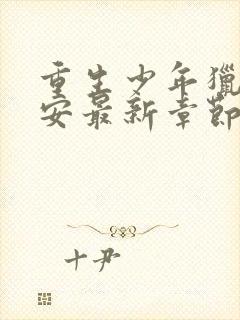 重生少年猎
安最新章节
十尹